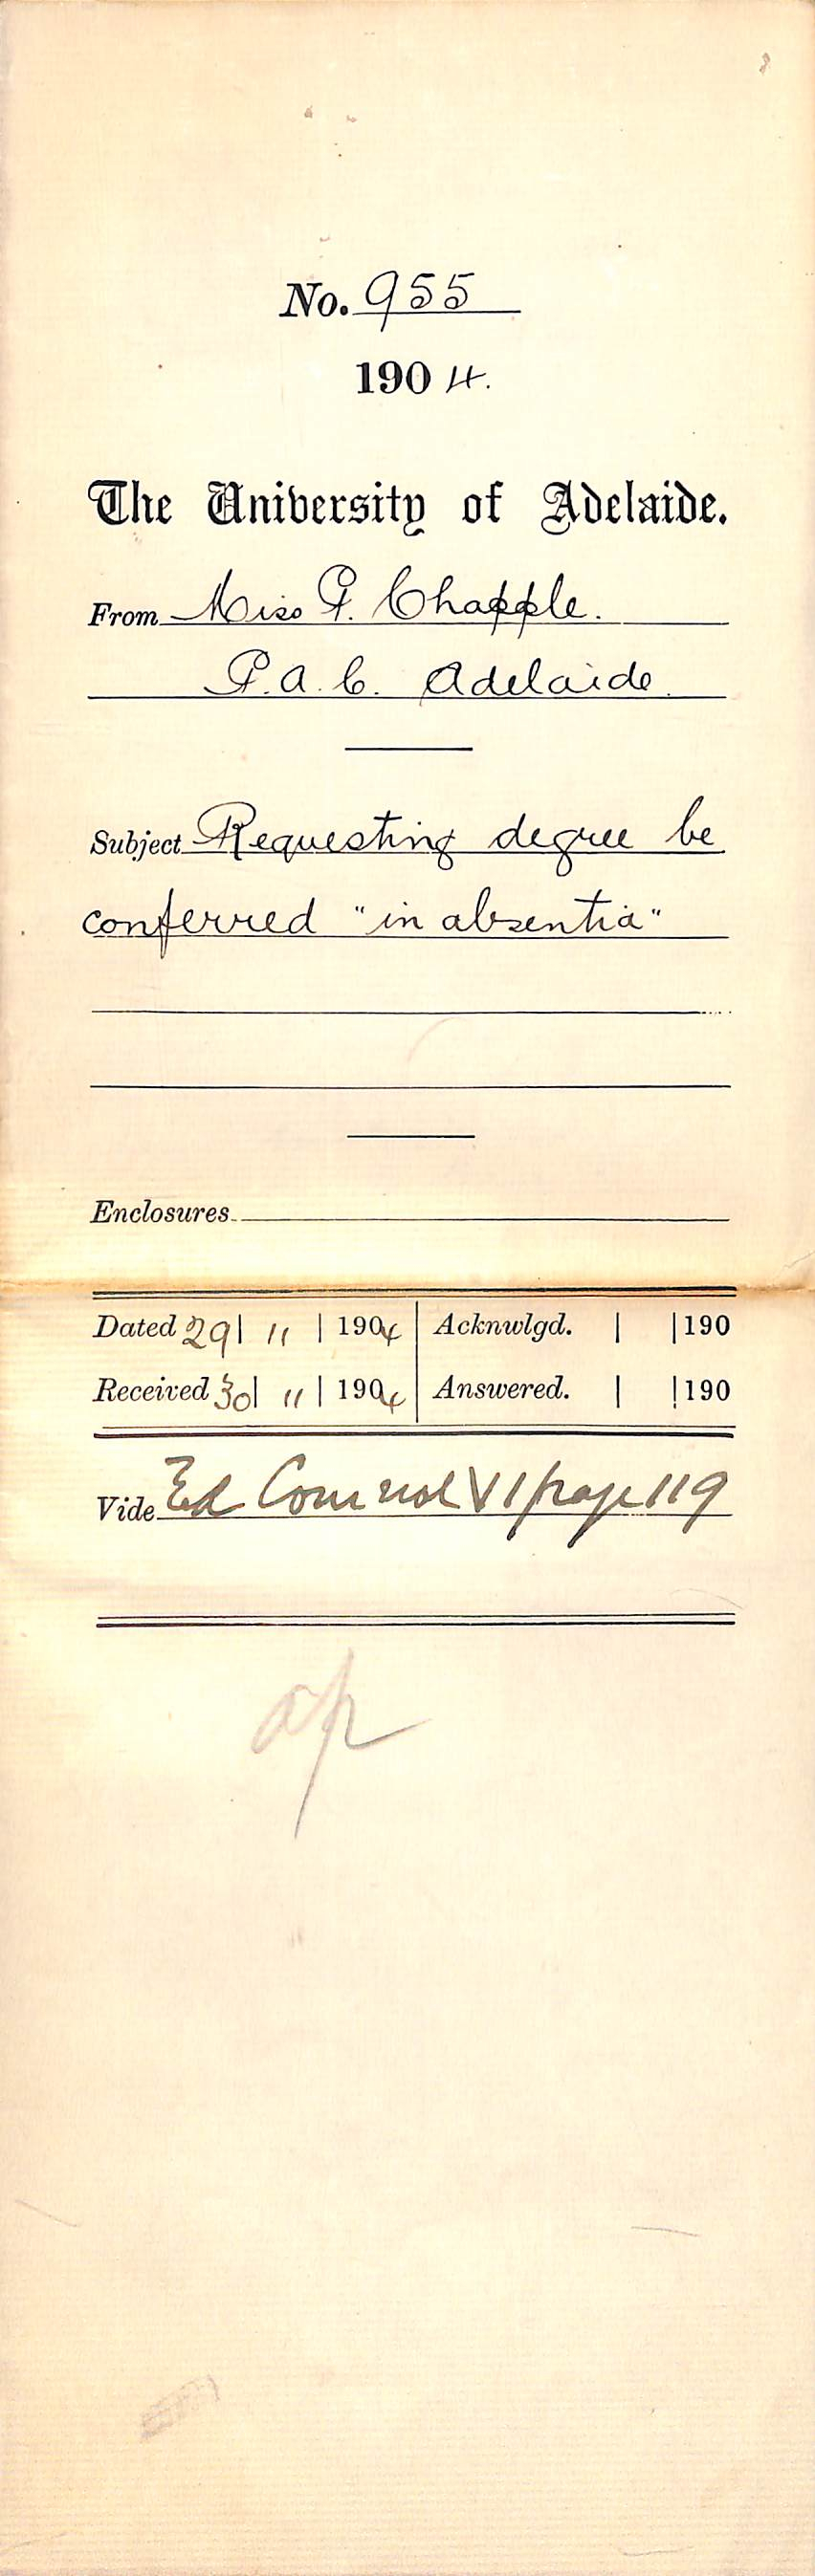 No. 955
1904.
The University of Adelaide.
From Miss G. Chapple.
P.A.C. Adelaide.
Subject Requesting degree be
conferred "in absentia"
Enclosures
Dated 29 | 11 | 1904 Acknwlgd. | | 190
Received 30 | 11 | 1904 Answered. | | 190
Vide Ed Com vol VI page 119